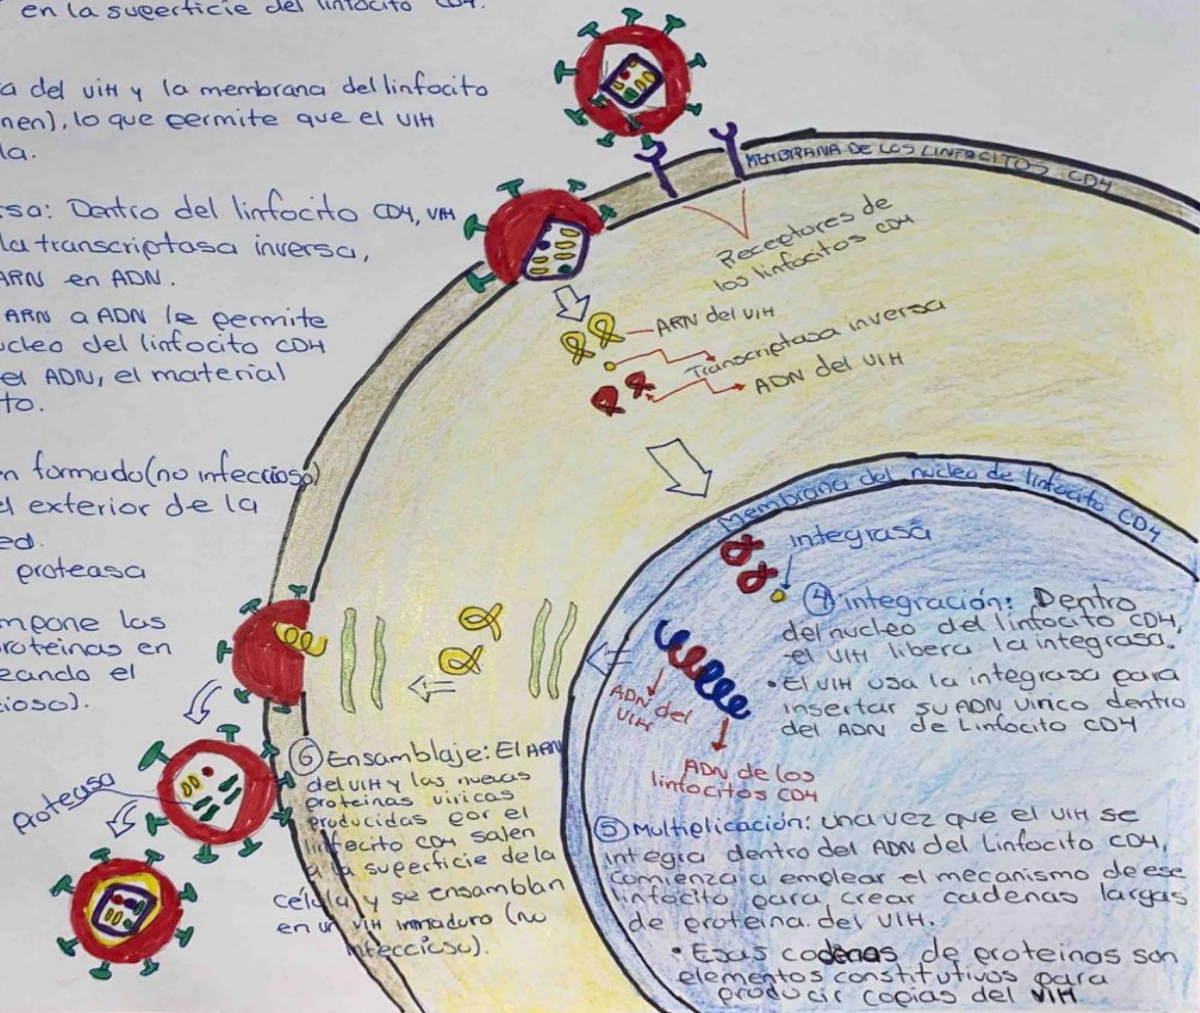 en la superficie del linfocito CD4.
a del VIH y la membrana del linfocito
nen), lo que permite que el VIH
la.
rsa: Dentro del linfocito CD4, VIH
la transcriptasa inversa,
ARN en ADN.
ARN a ADN le permite
cleo del linfocito CD4
el ADN, el material
to.
n formado (no infeccioso)
el exterior de la
ed.
proteasa
mpone las
roteinas en
eando el
cioso).
MEMBRANA DE LOS LINFOCITOS CD4
Receptores de
los linfocitos CD4
ARN del VIH
Transcriptasa inversa
ADN del VIH
Membrana del nucleo de linfocito CD4
integrasa
④ integración: Dentro
del nucleo del linfocito CD4,
el VIH libera la integrasa.
• El VIH usa la integrasa para
insertar su ADN vírico dentro
del ADN de Linfocito CD4
ADN del
VIH
ADN de los
linfocitos CD4
⑤ Multiplicación: una vez que el VIH se
integra dentro del ADN del Linfocito CD4,
comienza a emplear el mecanismo de ese
linfocito para crear cadenas largas
de proteina del VIH.
• Esas cadenas de proteinas son
elementos constitutivos para
producir copias del VIH
⑥ Ensamblaje: El ARN
del VIH y las nuevas
proteinas víricas
producidas por el
linfocito CD4 salen
a la superficie de la
célula y se ensamblan
en un VIH inmaduro (no
infeccioso).
Proteasa